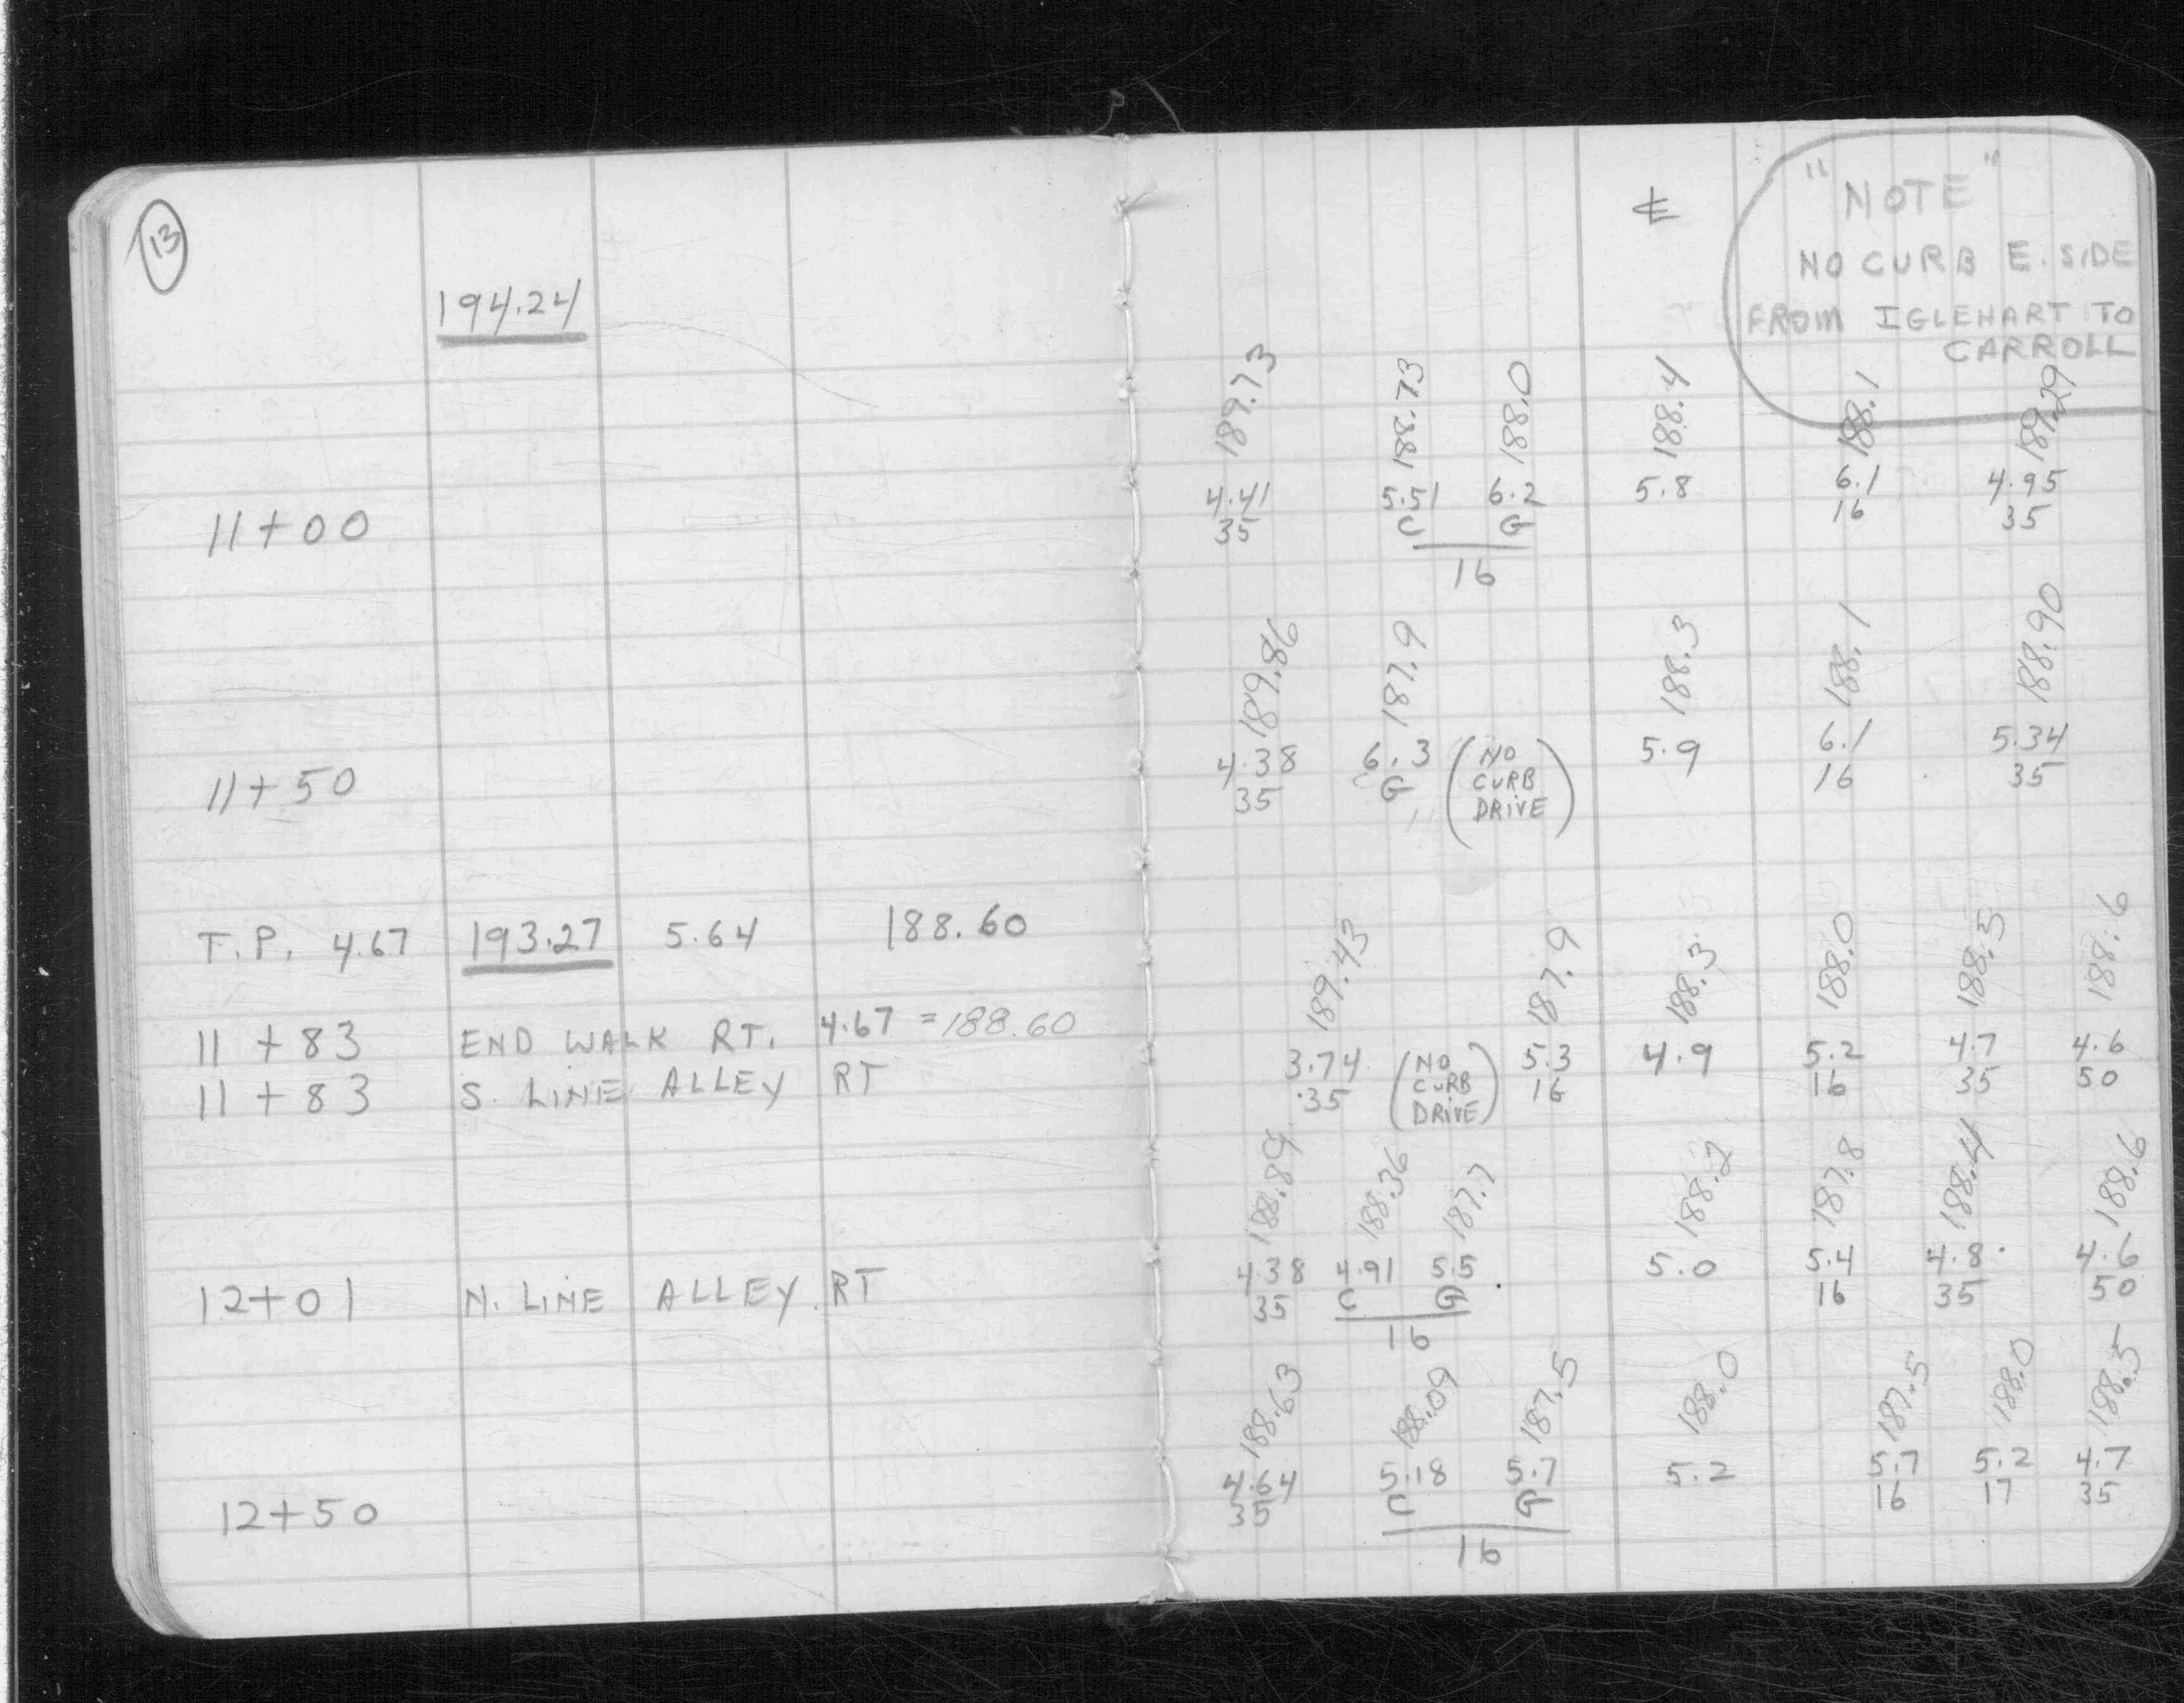 13
194.24
11+00
11+50
T.P. 4.67 193.27 5.64 188.60
11+83 END WALK RT. 4.67 = 188.60
11+83 S. LINE ALLEY RT
12+01 N. LINE ALLEY RT
12+50
"NOTE"
NO CURB E. SIDE
FROM IGLEHART TO
CARROLL
189.73 188.73 188.0 188.4 188.1 189.29
4.41 5.51 6.2 5.8 6.1 4.95
35 C G 16 35
16
189.86 187.9 188.3 188.1 188.90
4.38 6.3 (NO 5.9 6.1 5.34
35 G CURB 16 35
DRIVE)
189.43 187.9 188.3 188.0 188.5 188.6
3.74 (NO 5.3 4.9 5.2 4.7 4.6
35 CURB 16 16 35 50
DRIVE)
188.89 188.36 187.7 188.2 187.8 188.4 188.6
4.38 4.91 5.5 5.0 5.4 4.8 4.6
35 C G 16 35 50
16
188.63 188.09 187.5 188.0 187.5 188.0 188.5
4.64 5.18 5.7 5.2 5.7 5.2 4.7
35 C G 16 17 35
16